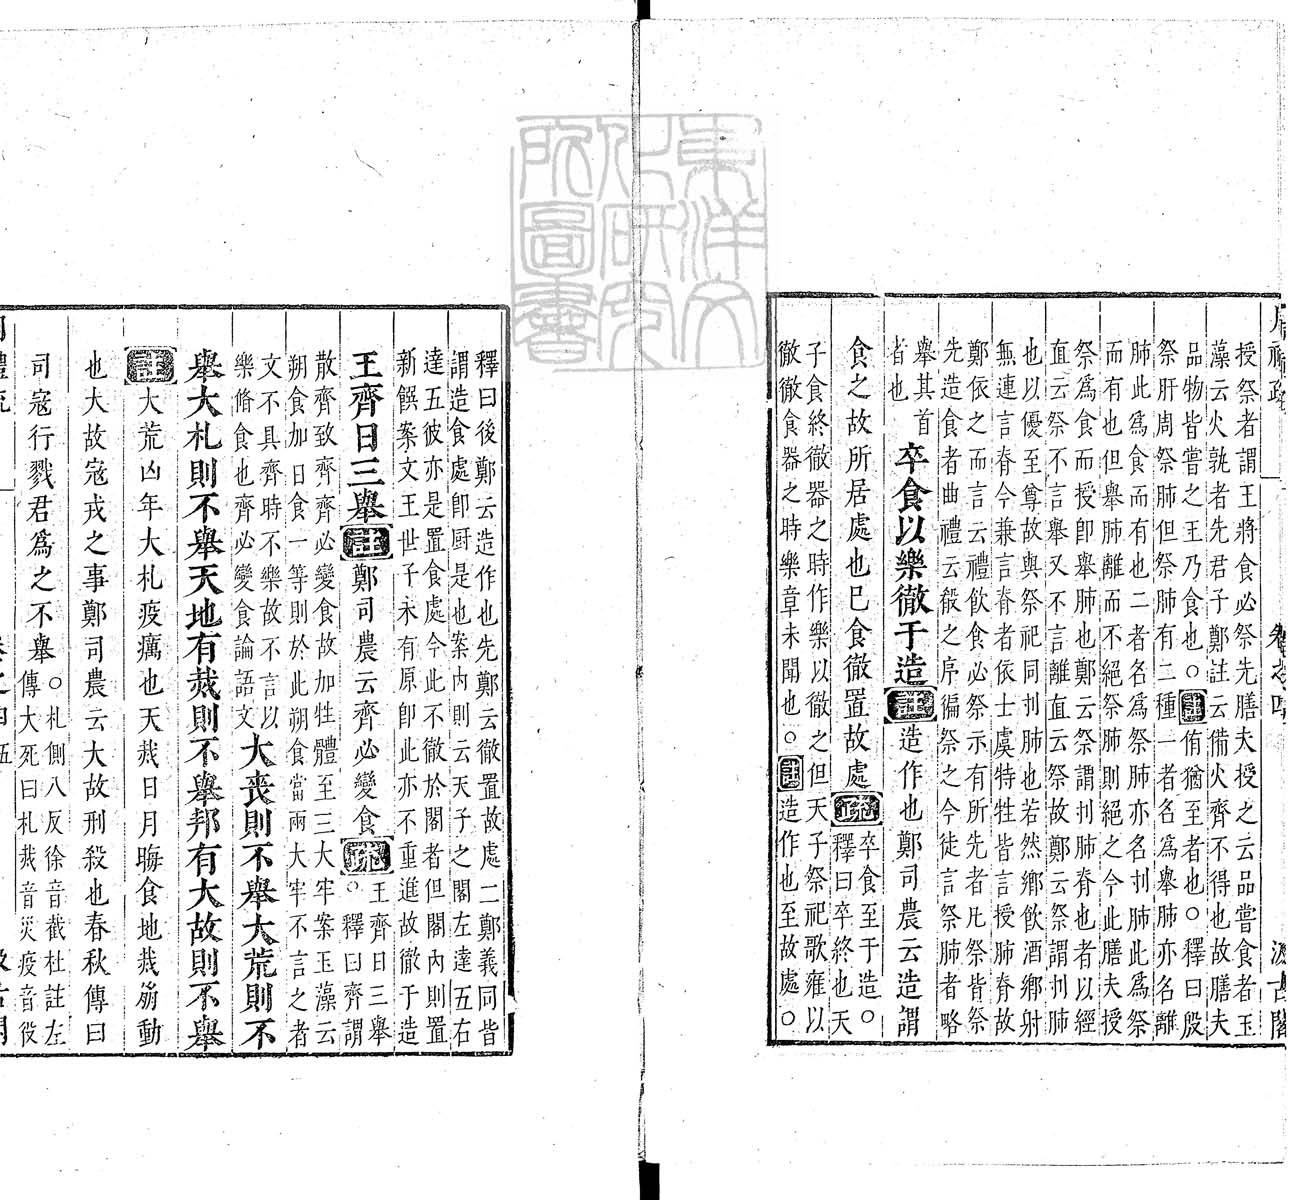 周禮疏
卷之四
汲古閣
授祭者謂王將食必祭先膳夫授之云品嘗食者玉
藻云火孰者先君子鄭註云備火齊不得也故膳夫
品物皆嘗之王乃食也○註侑猶至者也○釋曰殷
祭肝周祭肺但祭肺有二種一者名爲舉肺亦名離
肺此爲食而有也二者名爲祭肺亦名刌肺此爲祭
而有也但舉肺離而不絕祭肺則絕之今此膳夫授
祭爲食而授卽舉肺也鄭云祭謂刌肺脊也者以經
直云祭不言舉又不言離直云祭故鄭云祭謂刌肺
也以優至尊故與祭祀同刌肺也若然鄉飲酒鄉射
無連言脊今兼言脊者依士虞特牲皆言授肺脊故
鄭依之而言云禮飲食必祭示有所先者凡祭皆祭
先造食者曲禮云殽之序徧祭之今徒言祭肺者略
舉其首
者也
卒食以樂徹于造註造作也鄭司農云造謂
食之故所居處也已食徹置故處疏卒食至于造○
釋曰卒終也天
子食終徹器之時作樂以徹之但天子祭祀歌雍以
徹徹食器之時樂章未聞也○註造作也至故處○
釋曰後鄭云造作也先鄭云徹置故處二鄭義同皆
謂造食處卽厨是也案內則云天子之閣左達五右
達五彼亦是置食處今此不徹於閣者但閣內則置
新饌案文王世子未有原卽此亦不重進故徹于造
王齊日三舉註鄭司農云齊必變食疏王齊日三舉
○釋曰齊謂
散齊致齊齊必變食故加牲體至三大牢案玉藻云
朔食加日食一等則於此朔食當兩大牢不言之者
文不具齊時不樂故不言以
樂侑食也齊必變食論語文
大喪則不舉大荒則不
舉大札則不舉天地有烖則不舉邦有大故則不舉
註大荒凶年大札疫癘也天烖日月晦食地烖崩動
也大故寇戎之事鄭司農云大故刑殺也春秋傳曰
司寇行戮君爲之不舉○札側八反徐音截杜註左
傳大死曰札烖音災疫音役